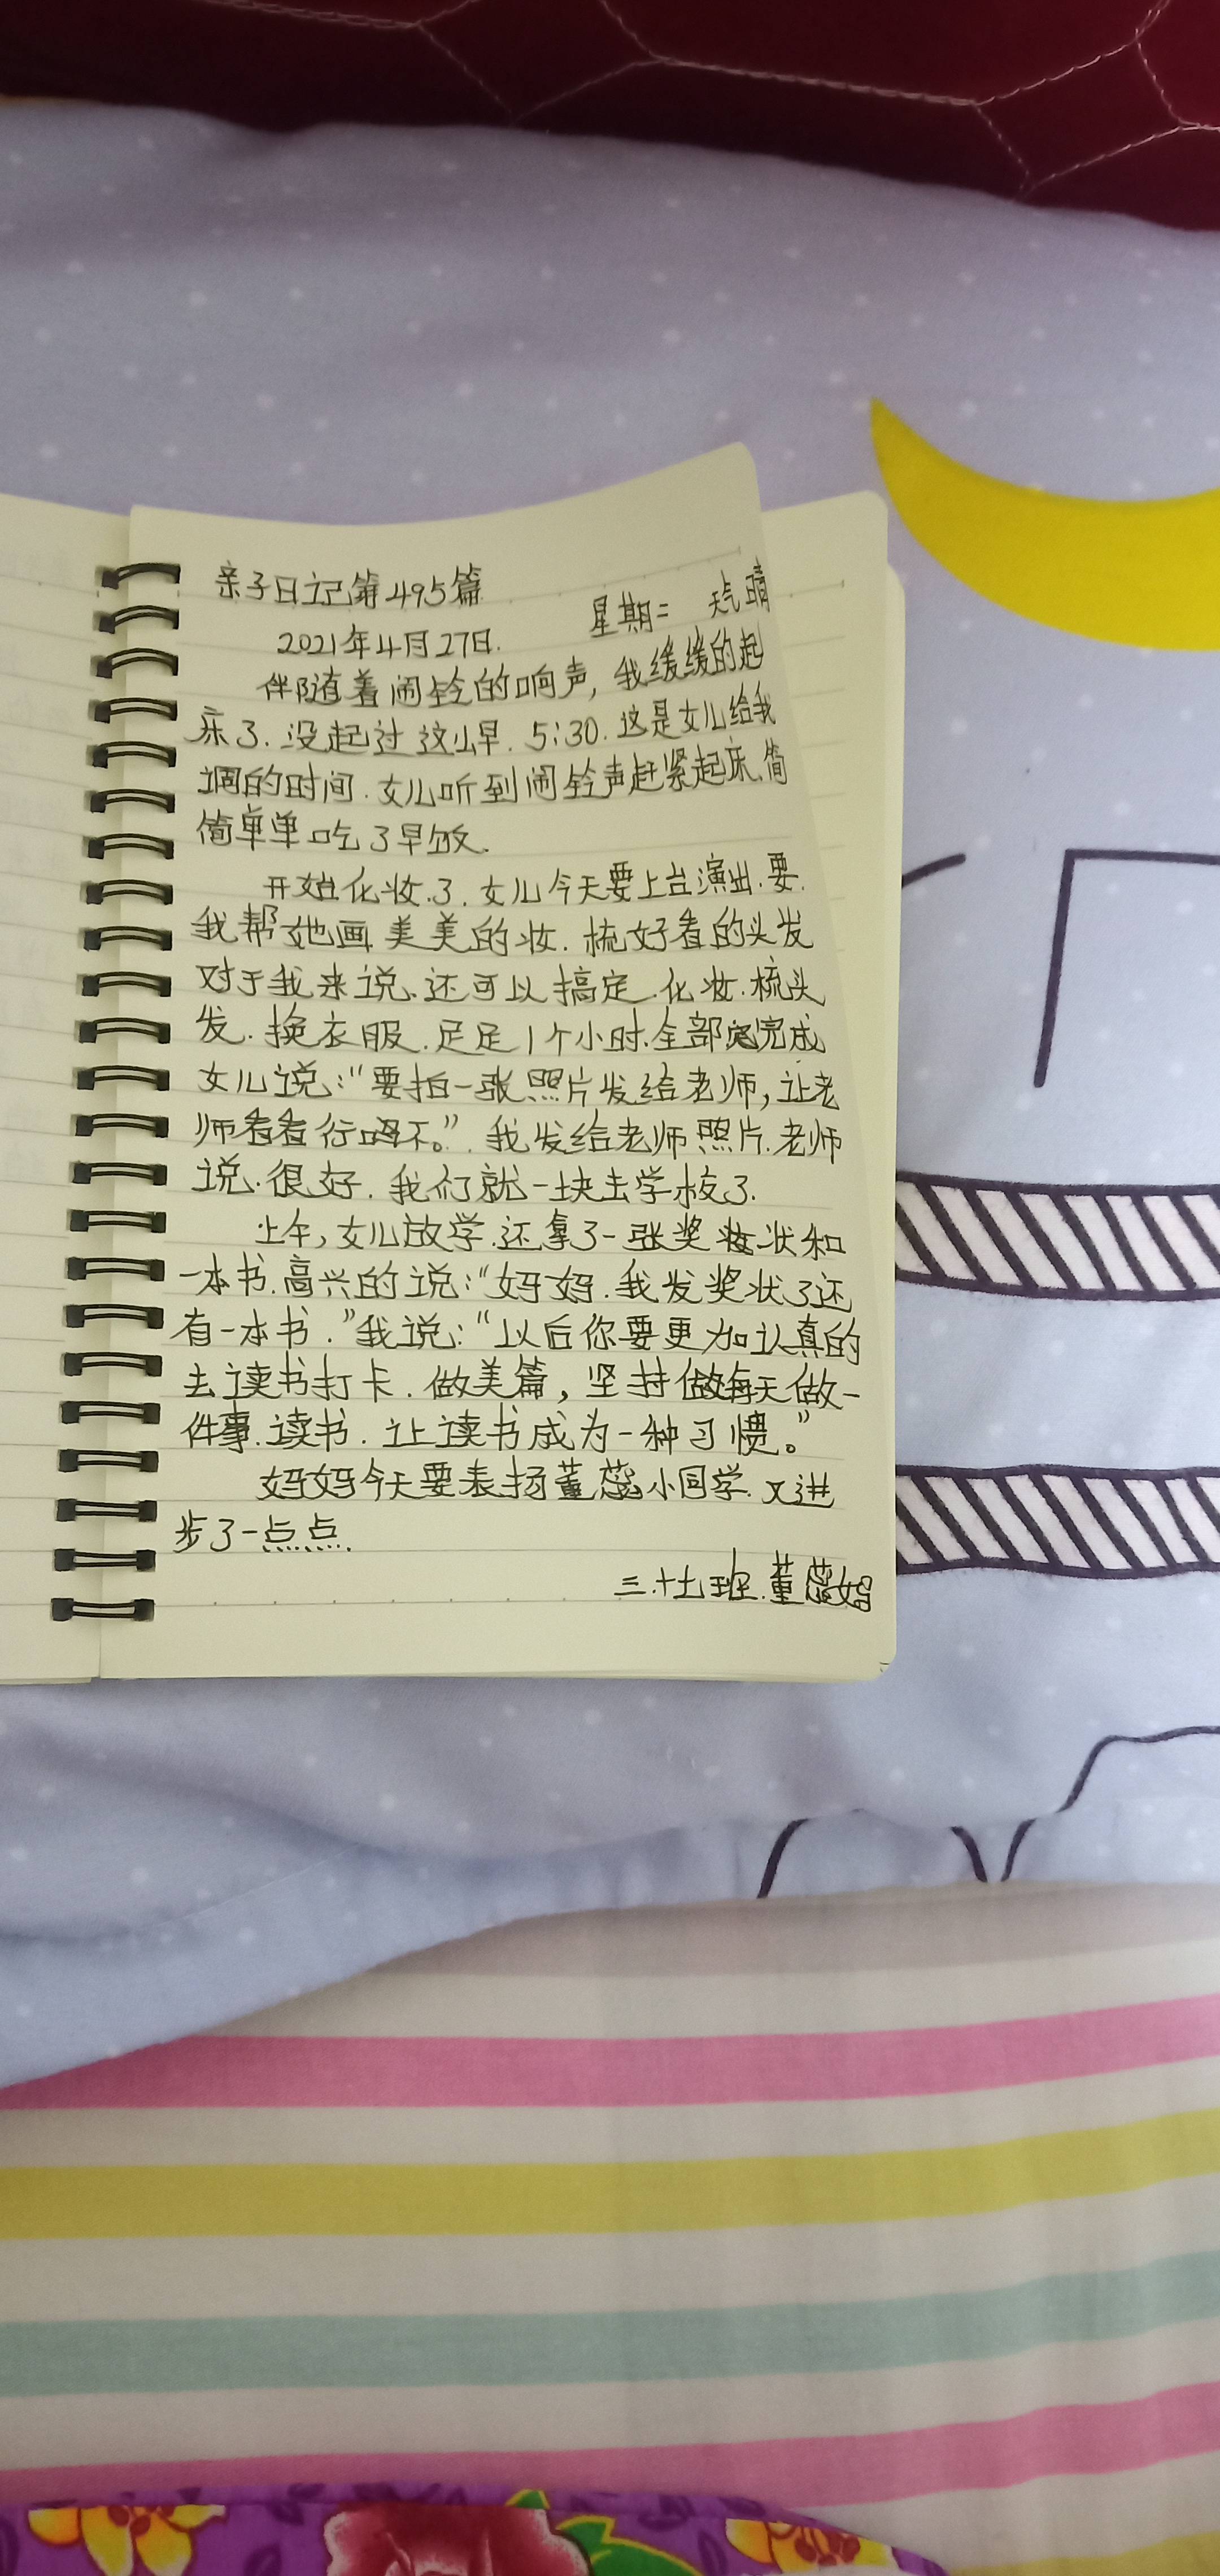 亲子日记第495篇
2021年4月27日. 星期二 天气晴
伴随着闹铃的响声,我缓缓的起
床了.没起过这么早.5:30.这是女儿给我
调的时间.女儿听到闹铃声赶紧起床.简
简单单吃了早饭.
开始化妆了.女儿今天要上台演出.要.
我帮她画美美的妆.梳好看的头发
对于我来说.还可以搞定.化妆.梳头
发.换衣服.足足1个小时.全部完成
女儿说:“要拍一张照片发给老师,让老
师看看行吗不。”.我发给老师照片.老师
说.很好.我们就一块去学校了.
上午,女儿放学.还拿了一张奖状和
一本书.高兴的说:“妈妈.我发奖状了还
有一本书.”我说:“以后你要更加认真的
去读书打卡.做美篇,坚持做每天做一
件事.读书.让读书成为一种习惯。”
妈妈今天要表扬董蕊小同学.又进
步了一点点.
三.十七班.董蕊妈